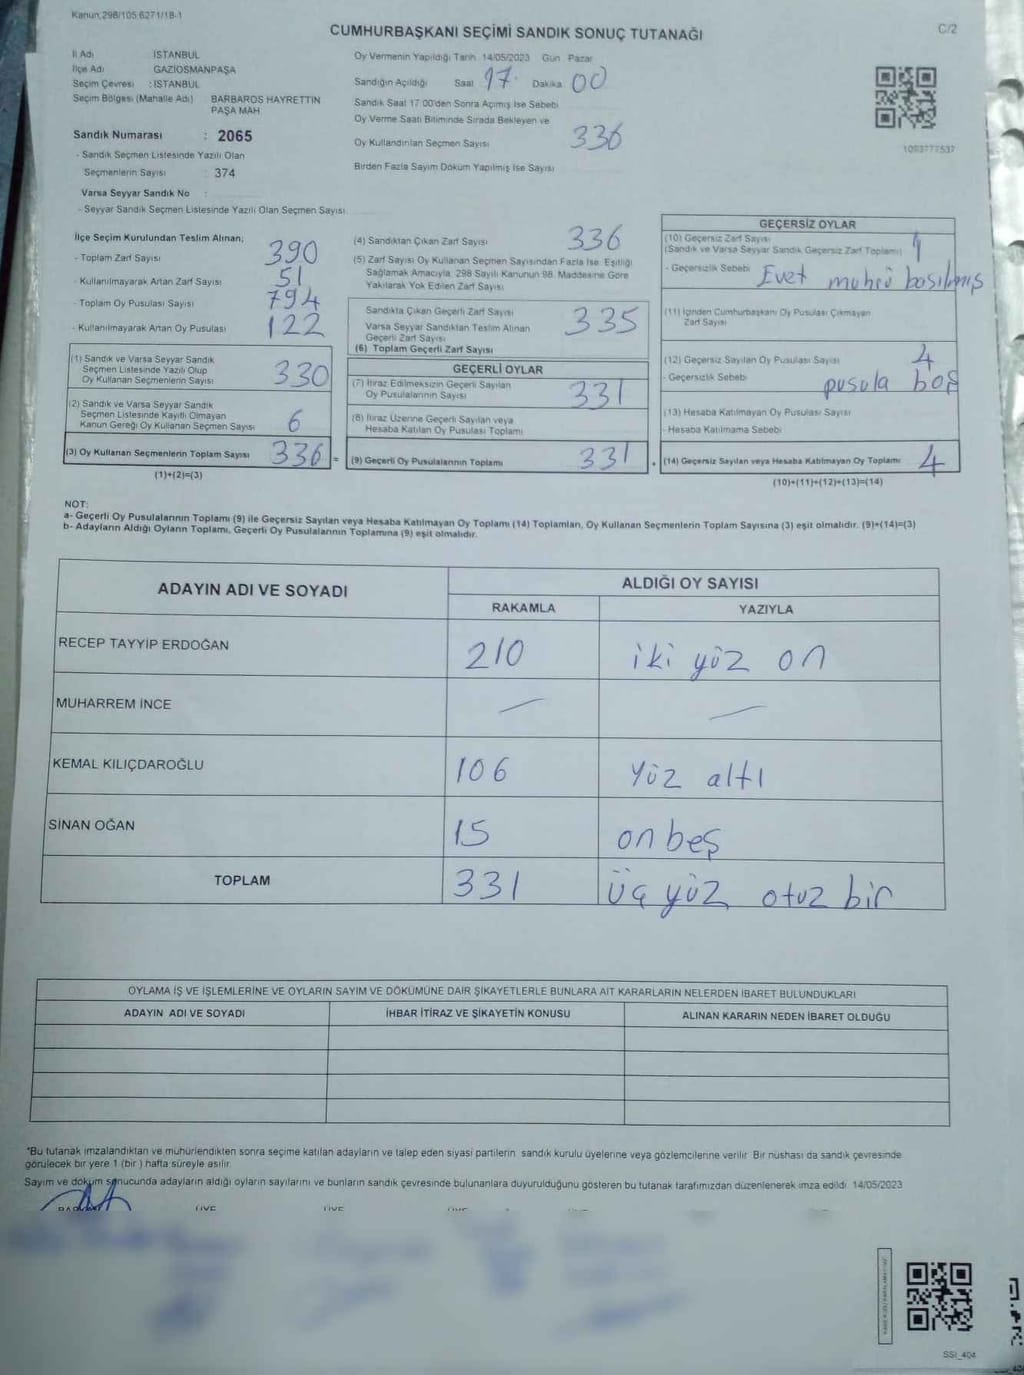 Kanun,298/105 6271/18-1
CUMHURBAŞKANI SEÇİMİ SANDIK SONUÇ TUTANAĞI
C/2
İl Adı İSTANBUL
İlçe Adı GAZİOSMANPAŞA
Seçim Çevresi : İSTANBUL
Seçim Bölgesi (Mahalle Adı) BARBAROS HAYRETTİN PAŞA MAH
Sandık Numarası : 2065
- Sandık Seçmen Listesinde Yazılı Olan
Seçmenlerin Sayısı : 374
Varsa Seyyar Sandık No :
- Seyyar Sandık Seçmen Listesinde Yazılı Olan Seçmen Sayısı
Oy Vermenin Yapıldığı Tarih 14/05/2023 Gün Pazar
Sandığın Açıldığı Saat 17 Dakika 00
Sandık Saat 17 00'den Sonra Açımış İse Sebebi
Oy Verme Saati Bitiminde Sırada Bekleyen ve
Oy Kullandırılan Seçmen Sayısı 336
Birden Fazla Sayım Döküm Yapılmış İse Sayısı
1093777537
İlçe Seçim Kurulundan Teslim Alınan;
- Toplam Zarf Sayısı 390
- Kullanılmayarak Artan Zarf Sayısı 51
- Toplam Oy Pusulası Sayısı 794
- Kullanılmayarak Artan Oy Pusulası 122
(1) Sandık ve Varsa Seyyar Sandık
Seçmen Listesinde Yazılı Olup
Oy Kullanan Seçmenlerin Sayısı 330
(2) Sandık ve Varsa Seyyar Sandık
Seçmen Listesinde Kayıtlı Olmayan
Kanun Gereği Oy Kullanan Seçmen Sayısı 6
(3) Oy Kullanan Seçmenlerin Toplam Sayısı 336 =
(1)+(2)=(3)
(4) Sandıktan Çıkan Zarf Sayısı 336
(5) Zarf Sayısı Oy Kullanan Seçmen Sayısından Fazla İse Eşitliği
Sağlamak Amacıyla, 298 Sayılı Kanunun 98. Maddesine Göre
Yakılarak Yok Edilen Zarf Sayısı
Sandıkta Çıkan Geçerli Zarf Sayısı 335
Varsa Seyyar Sandıktan Teslim Alınan
Geçerli Zarf Sayısı
(6) Toplam Geçerli Zarf Sayısı
GEÇERLİ OYLAR
(7) İtiraz Edilmeksizin Geçerli Sayılan
Oy Pusulalarının Sayısı 331
(8) İtiraz Üzerine Geçerli Sayılan veya
Hesaba Katılan Oy Pusulası Toplamı
(9) Geçerli Oy Pusulalarının Toplamı 331 +
GEÇERSİZ OYLAR
(10) Geçersiz Zarf Sayısı 1
(Sandık ve Varsa Seyyar Sandık Geçersiz Zarf Toplamı)
- Geçersizlik Sebebi Evet muhrü basılmış
(11) İçinden Cumhurbaşkanı Oy Pusulası Çıkmayan
Zarf Sayısı
(12) Geçersiz Sayılan Oy Pusulası Sayısı 4
- Geçersizlik Sebebi pusula boş
(13) Hesaba Katılmayan Oy Pusulası Sayısı
- Hesaba Katılmama Sebebi
(14) Geçersiz Sayılan veya Hesaba Katılmayan Oy Toplamı 4
(10)+(11)+(12)+(13)=(14)
NOT:
a- Geçerli Oy Pusulalarının Toplamı (9) ile Geçersiz Sayılan veya Hesaba Katılmayan Oy Toplamı (14) Toplamları, Oy Kullanan Seçmenlerin Toplam Sayısına (3) eşit olmalıdır. (9)+(14)=(3)
b- Adayların Aldığı Oyların Toplamı, Geçerli Oy Pusulalarının Toplamına (9) eşit olmalıdır.
ADAYIN ADI VE SOYADI ALDIĞI OY SAYISI
RAKAMLA YAZIYLA
RECEP TAYYİP ERDOĞAN 210 iki yüz on
MUHARREM İNCE — —
KEMAL KILIÇDAROĞLU 106 Yüz altı
SİNAN OĞAN 15 on beş
TOPLAM 331 üç yüz otuz bir
OYLAMA İŞ VE İŞLEMLERİNE VE OYLARIN SAYIM VE DÖKÜMÜNE DAİR ŞİKAYETLERLE BUNLARA AİT KARARLARIN NELERDEN İBARET BULUNDUKLARI
ADAYIN ADI VE SOYADI İHBAR İTİRAZ VE ŞİKAYETİN KONUSU ALINAN KARARIN NEDEN İBARET OLDUĞU
*Bu tutanak imzalandıktan ve mühürlendikten sonra seçime katılan adayların ve talep eden siyasi partilerin sandık kurulu üyelerine veya gözlemcilerine verilir. Bir nüshası da sandık çevresinde
görülecek bir yere 1 (bir) hafta süreyle asılır.
Sayım ve döküm sonucunda adayların aldığı oyların sayılarını ve bunların sandık çevresinde bulunanlara duyurulduğunu gösteren bu tutanak tarafımızdan düzenlenerek imza edildi. 14/05/2023
SSI_404